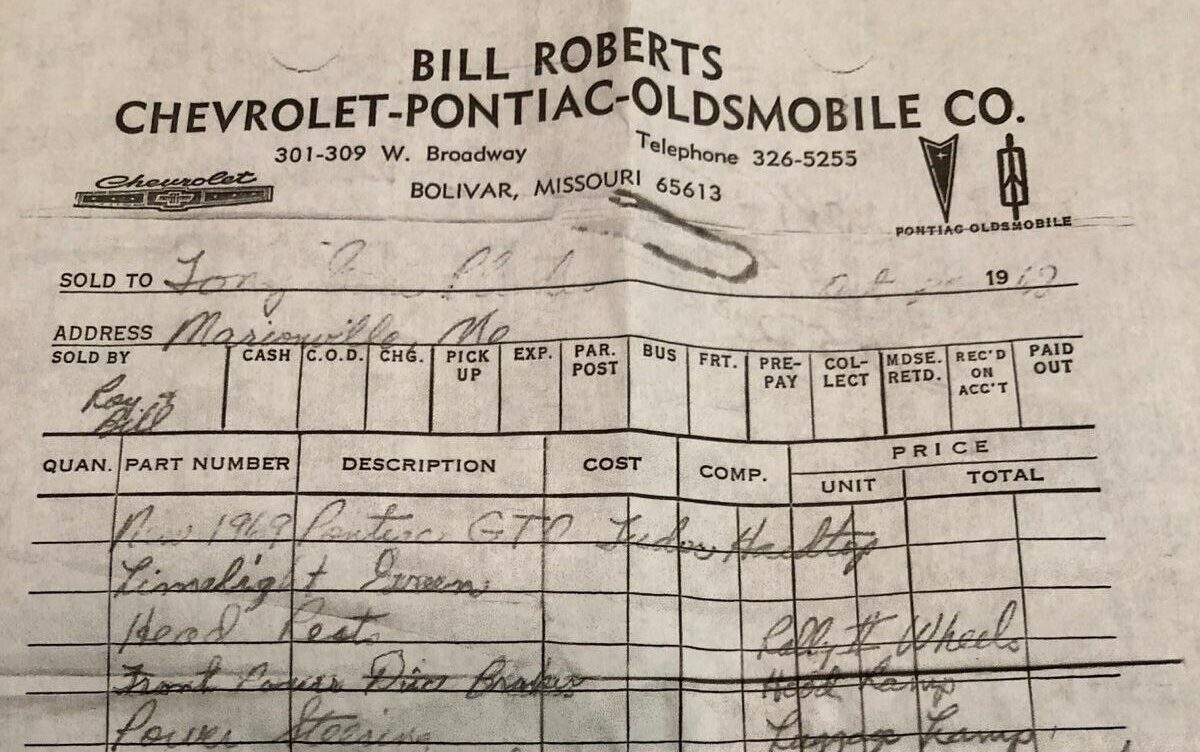 BILL ROBERTS
CHEVROLET-PONTIAC-OLDSMOBILE CO.
301-309 W. Broadway Telephone 326-5255
BOLIVAR, MISSOURI 65613
Chevrolet
PONTIAC-OLDSMOBILE
SOLD TO Tony 19
ADDRESS Marionville, Mo
SOLD BY CASH C.O.D. CHG. PICK UP EXP. PAR. POST BUS FRT. PRE-PAY COL-LECT MDSE. RETD. REC'D ON ACC'T PAID OUT
Roy &
Bill
QUAN. PART NUMBER DESCRIPTION COST COMP. PRICE
UNIT TOTAL
New 1969 Pontiac GTO Tudor Hardtop
Limelight Green
Head Rest Rally II Wheels
Front Power Disc Brakes Hood Lamp
Power Steering Luggage Lamp